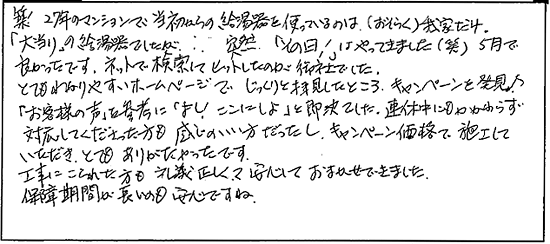 築27年のマンションで当初からの給湯器を使っているのは、(おそらく)我家だけ。
「大当り」の給湯器でしたが… 突然、「その日!」はやってきました(笑) 5月で
良かったです。ネットで検索してヒットしたのが御社でした。
とてもわかりやすいホームページで じっくりと拝見したところ、キャンペーンを発見♪
「お客様の声」を参考に「よし!ここにしよ」と即決でした。連休中にもかかわらず
対応してくださった方も 感じのいい方だったし、キャンペーン価格で 施工して
いただき、とても ありがたかったです。
工事にこられた方も 礼儀正しくて 安心して おまかせできました。
保障期間が長いのも 安心ですね。